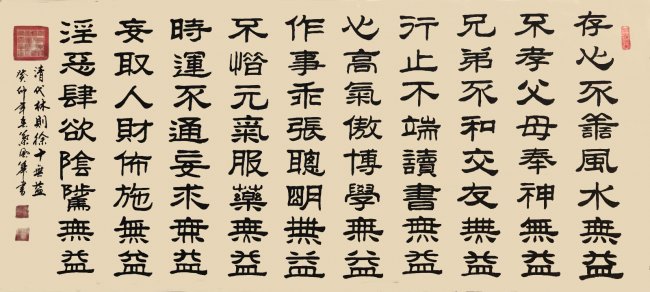 存心不善風水無益
不孝父母奉神無益
兄弟不和交友無益
行止不端讀書無益
心高氣傲博學無益
作事乖張聰明無益
不惜元氣服藥無益
時運不通妄求無益
妄取人財佈施無益
淫惡肆欲陰騭無益
清代林則徐十無益
癸卯年書